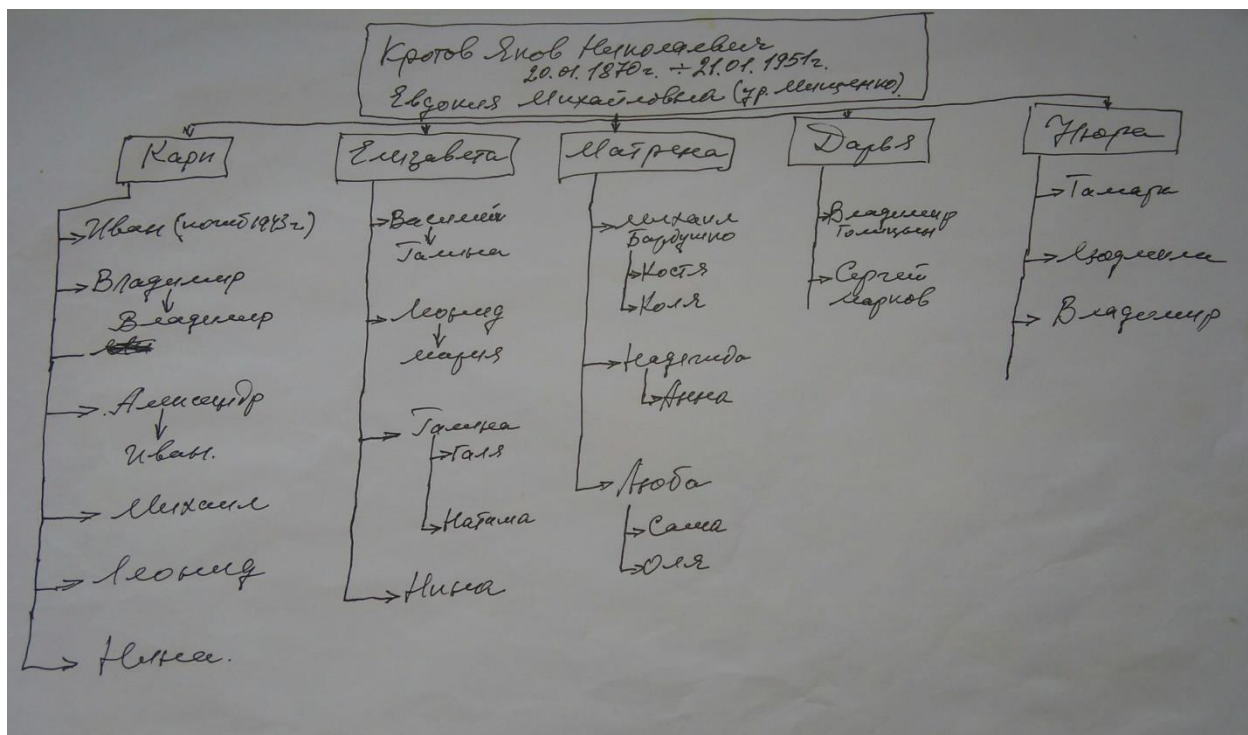 Кротов Яков Николаевич
20.01.1870г. ÷ 21.01.1951г.
Евдокия Михайловна (ур. Мищенко)
Карп
Елизавета
Матрена
Дарья
Нюра
Иван (погиб 1943г)
Владимир
Владимир
Александр
Иван.
Михаил
Леонид
Нина.
Василий
Галина
Леонид
Мария
Галина
Галя
Наташа
Нина
Михаил
Бардушко
Костя
Коля
Надежда
Анна
Люба
Саша
Оля
Владимир
Голицын
Сергей
Марков
Тамара
Людмила
Владимир